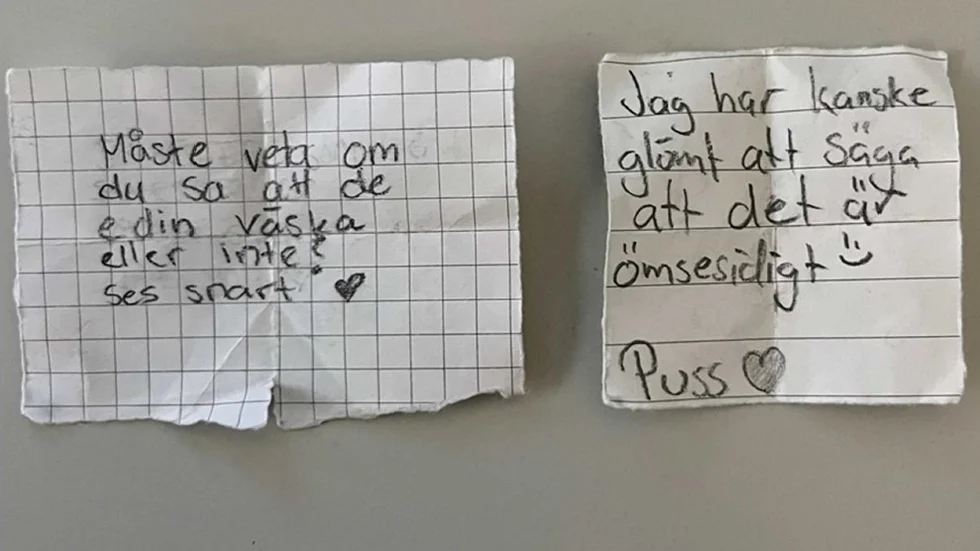 Måste veta om
du sa att de
e din väska
eller inte?
Ses snart ♥
Jag har kanske
glömt att säga
att det är
ömsesidigt ü
Puss ♥